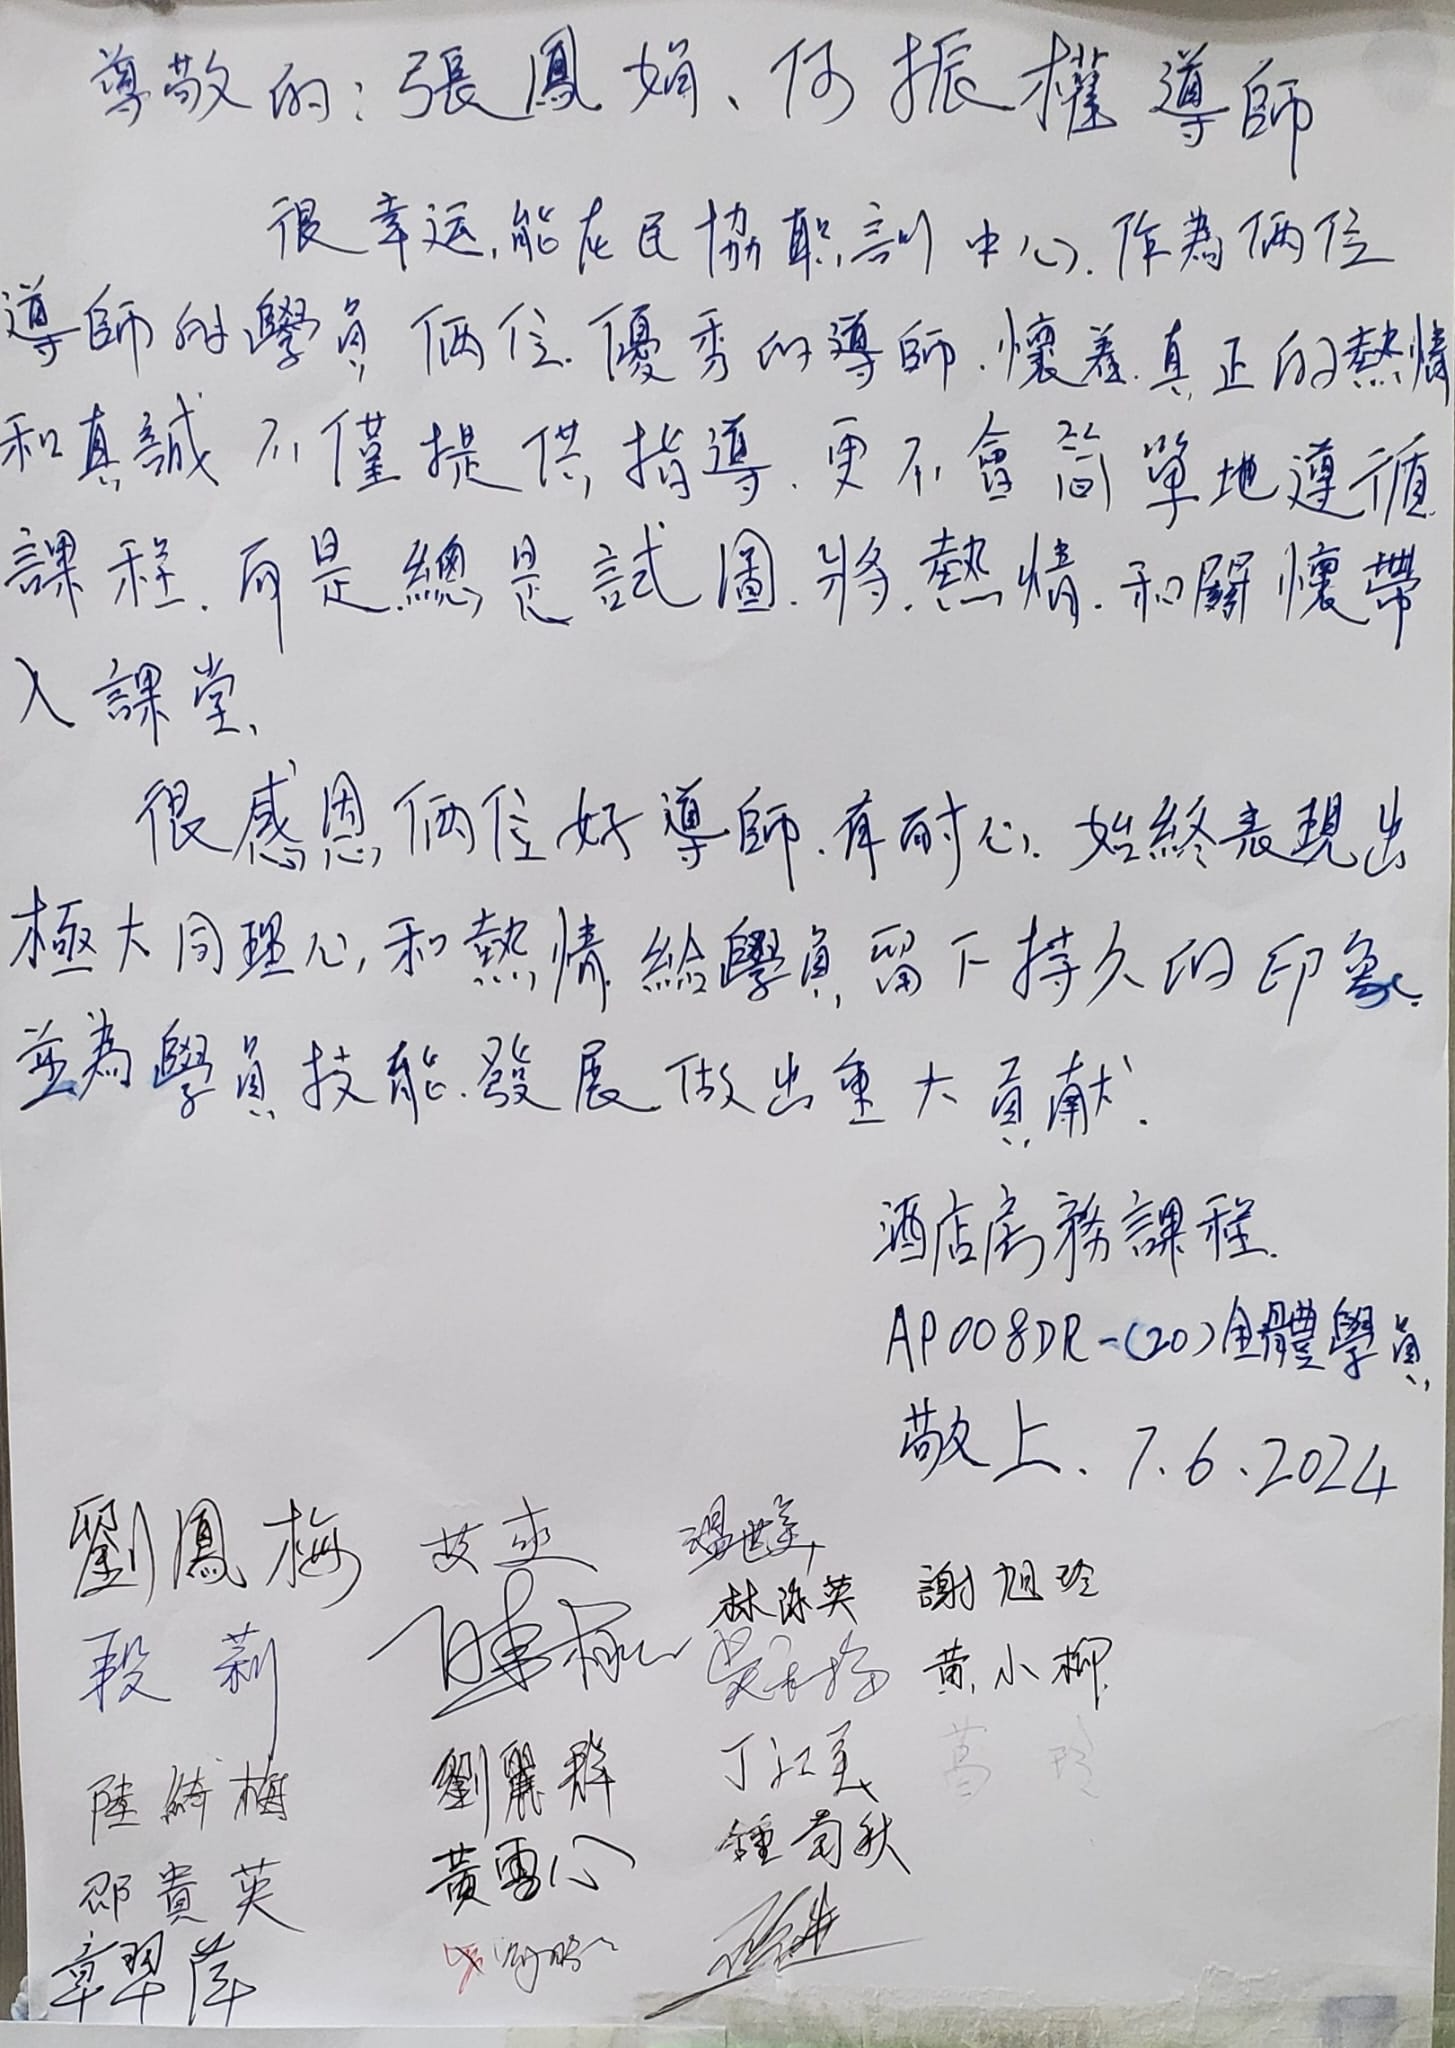 尊敬的：張鳳娟、何振權導師
很幸运,能在民協職訓中心.作為俩位
導師的學員俩位.優秀的導師.懷着.真正的熱情
和真誠不僅提供指導.更不會简單地遵循
課程.而是總是試圖.將.熱情.和關懷帶
入課堂、
很感恩俩位好導師.有耐心.始終表現出
極大同理心,和熱情給學員留下持久的印象.
並為學員技能.發展做出重大貢献.
酒店房務課程.
AP008DR-(20)全體學員
敬上.7.6.2024
劉鳳梅 艾爽 溫世美
林泳英 謝旭玲
段莉 黄小柳
劉麗群 丁江美 葛玲
陸綺梅
黃雪心 鍾菊秋
邵貴英
章翠萍